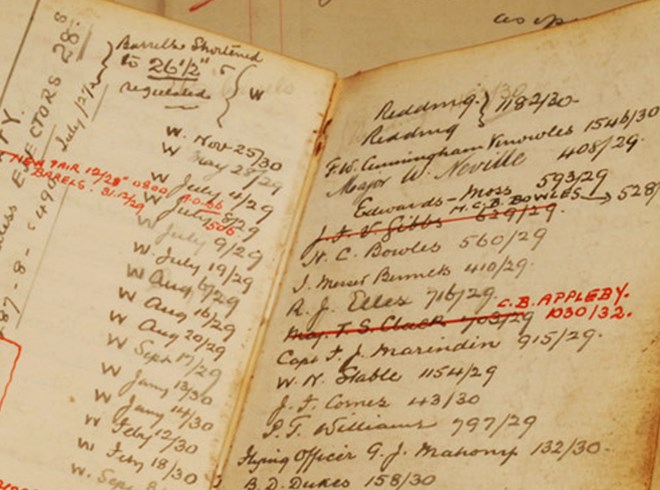 28.s
EJECTORS
July/12/2
Barrels Shortened
to 26½"
regulated
W
W. Nov 25/30
W May 28/29
W July 4/29
NEW PAIR 12/28" 0800 AO.66
BARRELS. 31.12/29
W July 8/29
1505
W July 9/29
W. July 19/29
W Aug 6/29
W Aug 16/29
W Aug 20/29
W Sept 17/29
W Jany 13/30
W Jany 14/30
W Feby 12/30
W Feby 18/30
W. Sept
as
Redding } 1182/30.
Redding
F.W. Cunningham Knowles 1546/30
Major W. Neville 408/29.
Edwards-Moss 593/29
M.C.B. BOWLES → 528/
J. F. V Gibbs 629/29.
H. C. Bowles 560/29
J. Mercer Bennets 410/29.
R. J. Elles 716/29
C.B. APPLEBY.
Maj. T. S. Clack 703/29 1030/32.
Capt F. J. Marindin 915/29.
W. N. Stable 1154/29
J. F. Cornes 143/30
P. T. Williams 797/29
Flying Officer G. J. Mahony 132/30.
B. D. Dukes 158/30